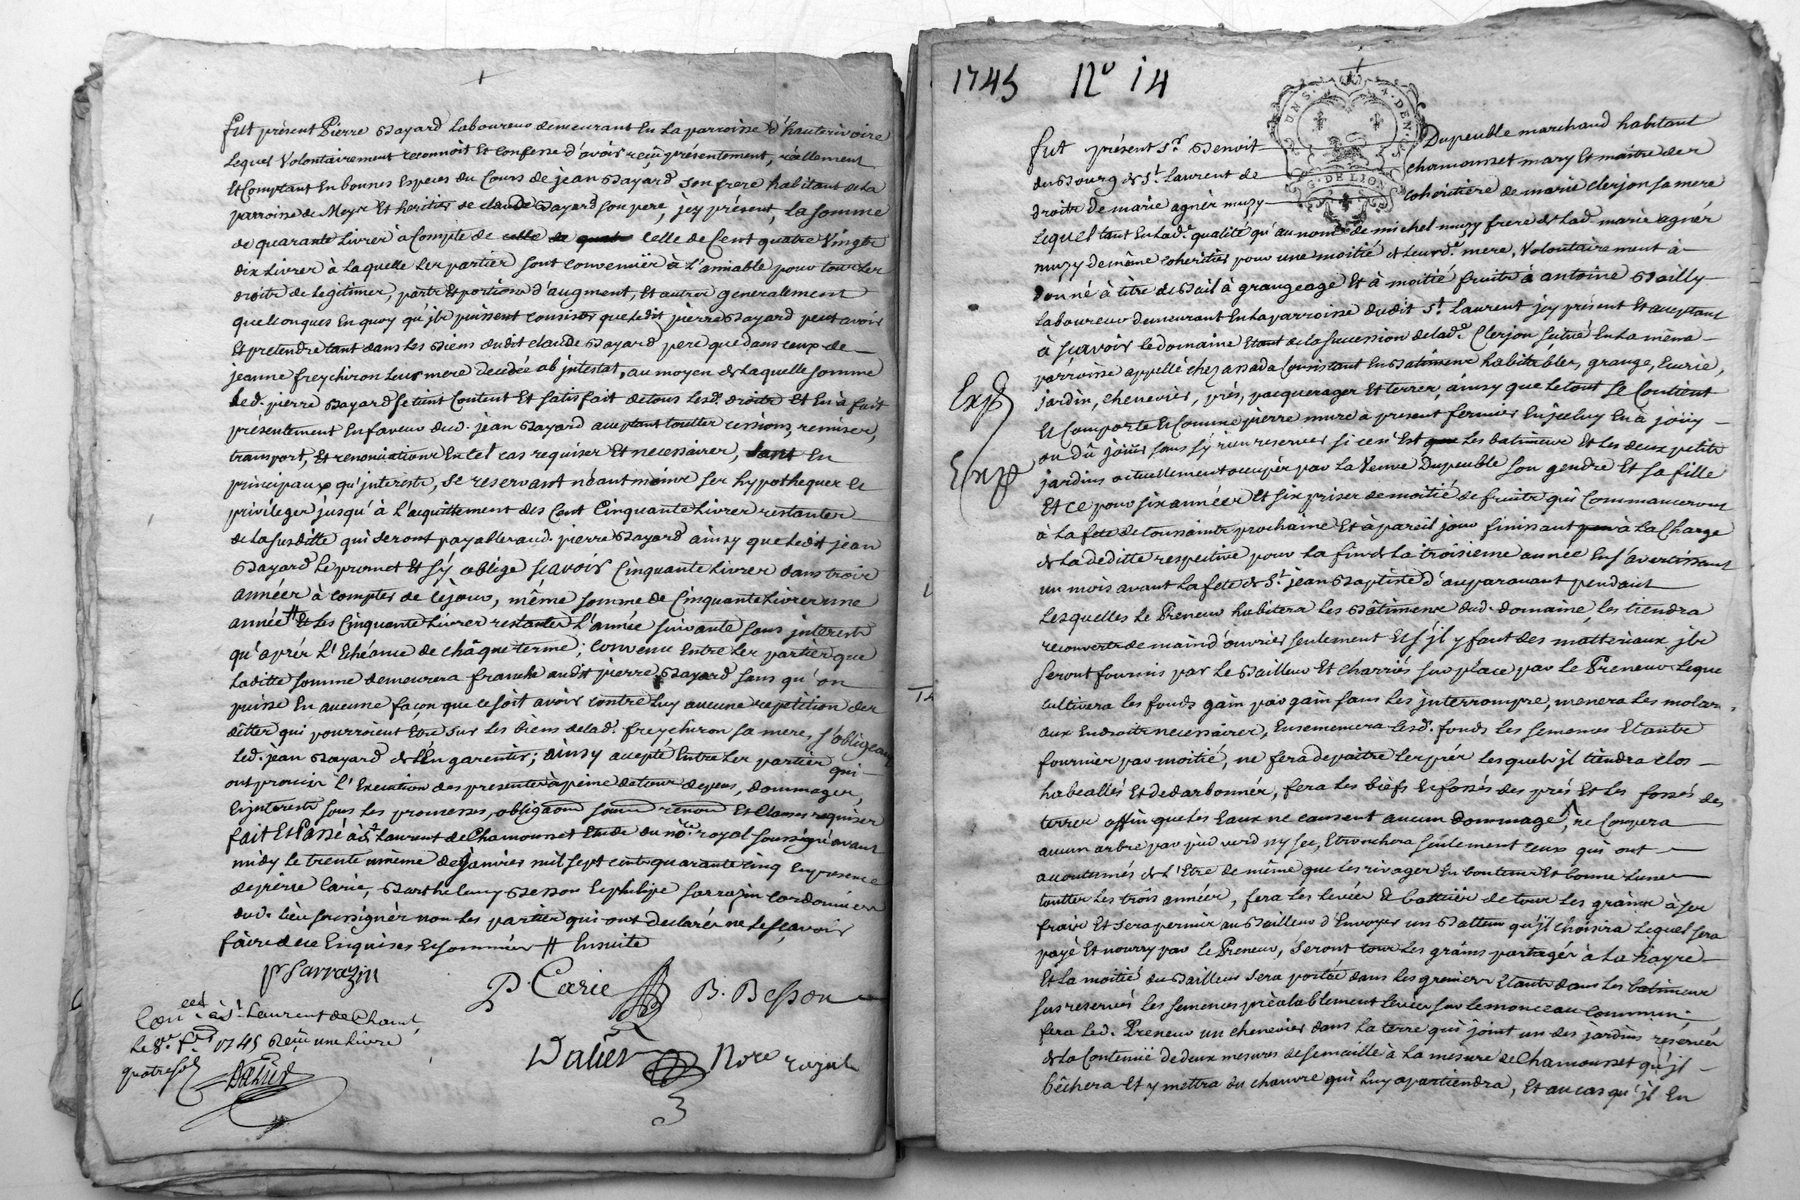 fut présent Pierre Bayard Laboureur demeurant En La parroisse d'hauterivoire
Lequel Volontairement reconnoit Et Confesse d'avoir reçu présentement, réellement
Et Comptant En bonnes Especes du Cours de jean Bayard son frere habitant de La
parroisse de Meys Et heritier de claude Bayard son pere, jcy présent, La somme
de quarante Livres à Compte de celle de quat Celle de Cent quatre Vingts
dix Livres à Laquelle Les parties sont convenües à L'amiable pour tous Les
droits de Legitimes, parts Et portions d'augment, Et autres generalement
quelconques En quoy qu'jls puissent consister que Ledit pierre Bayard peut avoir
Et pretendre tant dans Les Biens dudit claude Bayard pere que dans ceux de
jeanne freychiron Leur mere decédée ab jntestat, au moyen de Laquelle somme
Led. pierre Bayard se tient Content Et satisfait de tous Lesd. droits Et En à fait
presentement En faveur dud. jean Bayard acceptant touttes cessions, remises,
transport, Et renonciations En tel cas requises Et necessaires, tant En
principaux qu'jnterests, se reservant néantmoins ses hypotheques Et
privileges jusqu'à L'acquittement des Cent Cinquante Livres restantes
de La susditte qui seront payables aud. pierre Bayard ainsy que Ledit jean
Bayard Le promet Et s'y oblige scavoir Cinquante Livres dans trois
années à compter de Cejour, même somme de Cinquante Livres une
année # Et Les Cinquante Livres restantes L'année suivante sans jnterests
qu'après L'Echéance de châque terme; Convenu Entre Les parties que
Laditte somme demeurera franche audit pierre Bayard sans qu'on
puisse En aucune façon que ce soit avoir contre Luy aucune repetition des
dettes qui pourroient Etre sur Les biens de Lad. freychiron sa mere, s'obligeant
Led. jean Bayard de L'En garentir; ainsy accepté Entre Les parties qui
ont promis L'Execution des presentes à peine de tous depens, dommages,
Et jnterests sous Les promesses, obligaons soumi renon Et Clauses requises
fait Et Passé à St. Laurent de Chamousset Etude du nore. royal soussigné avant
midy Le trente unième de Janvier mil sept cents quarante cinq En presence
de pierre Carie, Barthelemy Besson Et philipe Sarrazin Cordonniers
dud. Lieu soussignés non Les parties qui ont declarés ne Le sçavoir
faire de ce Enquises Et sommées # Ensuite
P. Sarrazin
P. Carie B. Besson
Dalier Nore royal
à St. Laurent de Cham.
Le 8e. feb. 1745 Reçu une Livre
quatre sols
Dalier
1745 No 14
G. DE LION
fut présent sr. Benoit Dupeuble marchand habitant
du Bourg de St. Laurent de chamousset mary Et maître des
droits de marie agnès muzy Cohéritière de marie clerjon sa mere
Lequel tant En Lad. qualité qu'au nom de michel muzy frere de Lad. marie agnès
muzy de même Coheritier pour une moitié de Leurd. mere, Volontairement à
Donné à titre de Bail à grangeage Et à moitié fruits à antoine Bailly
Laboureur demeurant En La parroisse dudit St. Laurent jcy présent Et acceptant
à scavoir Le domaine Etant de La succession de Lad. Clerjon situé En La même
parroisse appellé chez assada Consistant En Batiments habitables, grange, Ecurie,
jardin, chenevier, prés, pacquerages Et terres, ainsy que Le tout se Contient
Et Comporte Et Comme pierre mure à present fermier En jceluy En à jouy
ou dû joüir sans s'y rien reserver si ce n'Est que Les batiments Et Les deux petits
jardins actuellement occupés par La Veuve Dupeuble son gendre Et sa fille
Et ce pour six années Et six prises de moitié de fruits qui Commanceront
à La fête de toussaints prochaine Et à pareil jour finissant à La Charge
de La deditte respective pour La fin de La troisième année En s'avertissant
un mois avant La fete de St. jean Baptiste d'auparavant pendant
Lesquelles Le Preneur habitera Les Bâtiments dud. domaine Les tiendra
recouverts de main d'ouvrier seulement Et s'jl y faut des matteriaux jls
seront fournis par Le Bailleur Et charriés sur place par Le Preneur Leque
Cultivera Les fonds gain par gain sans Les jnterrompre, menera Les molan
aux Endroits necessaires, Ensemencera Lesd. fonds Les semences Etants
fournies par moitié, ne fera depaitre Les prés Lesquels jl tiendra clos
habealiés Et dedarbonnés, fera Les biefs Et fossés des prés Et Les fossés des
terres affin que Les Eaux ne causent aucun dommage, ne Coupera
aucun arbre par pied verd ny sec, Etronchera seulement ceux qui ont
accoutumés de L'Etre de même que Les rivages En bonteur Et bonne Lune
touttes Les trois années, fera Les Levée Et battüe de tous Les grains à ses
fraix Et sera permis au Bailleur d'Envoyer un Batteur qu'jl choisira Lequel sera
payé Et nourry par Le Preneur, seront tous Les grains partagés à La hayre
Et La moitié du Bailleur sera portée dans Les greniers Etants dans Les batiments
sus reservés Les semences préalablement Levées sur Le monceau Commun
fera Led. Preneur un chenevier dans La terre qui joint un des jardins reservés
de La Contenüe de deux mesures de semaille à La mesure de Chamousset qu'jl
bêchera Et y mettra du chanvre qui Luy apartiendra, Et au cas qu'jl En